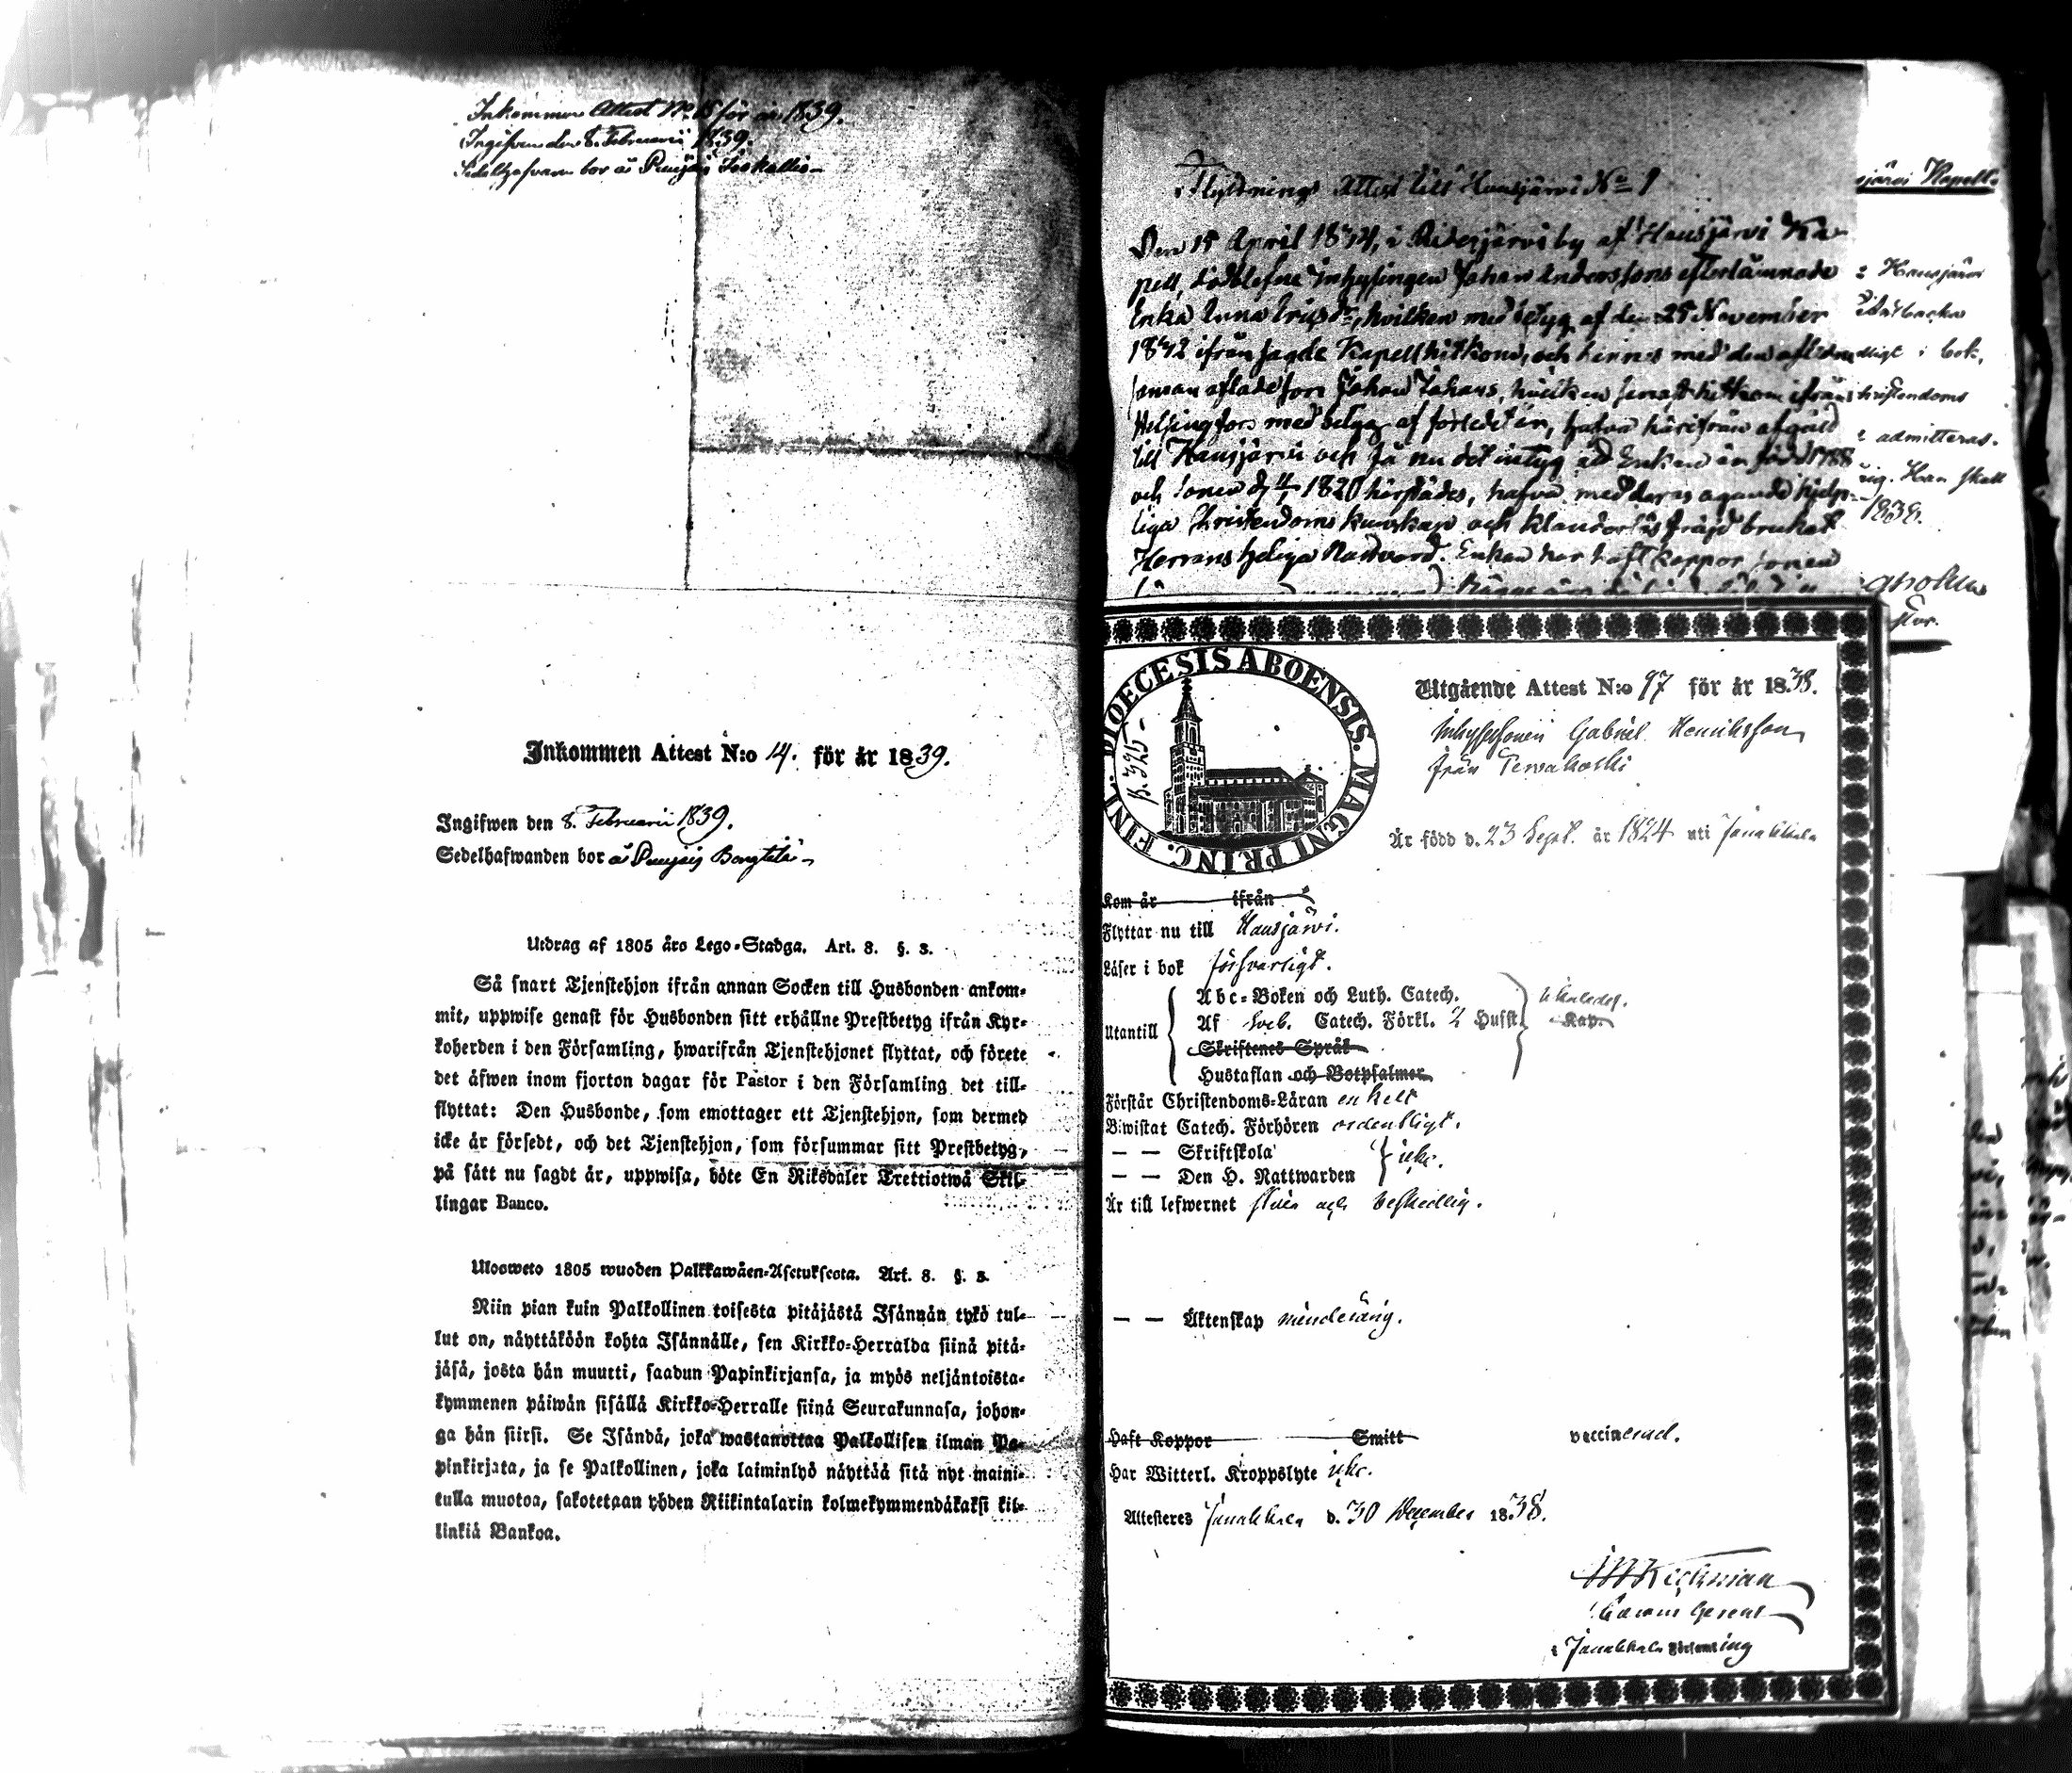 Inkommen Attest No 15 för år 1839.
Ingifven den 8. Februarii 1839.
Sedelhafvaren bor å Punjais
Inkommen Attest N:o 14. för år 1839.
Ingifwen den 8. Februarii 1839.
Sedelhafwanden bor å Punjais
Utdrag af 1805 års Lego-Stadga. Art. 8. §. 3.
Så snart Tjenstehjon ifrån annan Socken till Husbonden ankom-
mit, uppwise genast för Husbonden sitt erhållne Prestbetyg ifrån Kyr-
koherden i den Församling, hwarifrån Tjenstehjonet flyttat, och förete
det äfwen inom fjorton dagar för Pastor i den Församling det till-
flyttat: Den Husbonde, som emottager ett Tjenstehjon, som dermed
icke är försedt, och det Tjenstehjon, som försummar sitt Prestbetyg,
på sätt nu sagdt är, uppwisa, böte En Riksdaler Trettiotwå Skil-
lingar Banco.
Ulosweto 1805 wuoden Palkkawäen-Asetuksesta. Art. 8. §. 3.
Niin pian kuin Palkollinen toisesta pitäjästä Isännän tykö tul-
lut on, näyttäköön kohta Isännälle, sen Kirkko-Herralda siinä pitä-
jäsä, josta hän muutti, saadun Papinkirjansa, ja myös neljäntoista-
kymmenen päiwän sisällä Kirkko-Herralle siinä Seurakunnasa, johon-
ga hän siirsi. Se Isändä, joka wastanottaa Palkollisen ilman Pa-
pinkirjata, ja se Palkollinen, joka laiminlyö näyttää sitä nyt maini-
tulla muotoa, sakotetaan yhden Riikintalarin kolmekymmendäkaksi kil-
linkiä Bankoa.
Flyttnings Attest till Hausjärvi No 1
Den 15 April 1834, i Ridasjärvi by af Hausjärvi Ka-
pell, dödblefne Inhysingen Johan Anderssons efterlämnade
Enka Anna Ericsdr, hvilken med betyg af den 25 November
1832 ifrån sagde Kapell hitkom, och hennes med den aflidne
mannen aflade son Johan Johans, hvilken senast hitkom ifrån
Helsingfors med betyg af förledet år, hafva härifrån afgått
till Hausjärvi och få nu det intyg att Enkan är född 1788
och sonen d 4/1 1820 härstädes, hafva med deras ägande hjelp-
liga Christendoms kunskap och klanderlös frägd brukat
Herrans heliga Nattvard. Enkan har haft koppor sonen
järvi Kapell
Hausjärvi
i bok,
christendoms
admitteras.
Han skall
1838.
DIOECESIS ABOENSIS. MAGNI PRINC. FINL.
p. 325
Utgående Attest N:o 97 för år 1838.
Inhysesonen Gabriel Henriksson
från Terwakoski
Är född d. 23 Sept. år 1824 uti Janakkala
Kom år ifrån
Flyttar nu till Hausjärvi.
Läser i bok försvarligt.
Utantill
Abc-Boken och Luth. Catech.
Af Sveb. Catech. Förkl. 2 Husst.
Kap.
Skriftenes Språk
Hustaflan och Botpsalmer
Förstår Christendoms-Läran enkelt
Biwistat Catech. Förhören ordentligt.
— — Skriftskola
— — Den H. Nattwarden
icke.
Är till lefwernet stilla och beskedlig.
— — Äktenskap minderårig.
Haft Koppor Smitt vaccinerad.
Har Witterl. Kroppslyte icke.
Attesteras Janakkala d. 30 December 1838.
i Janakkala Församling